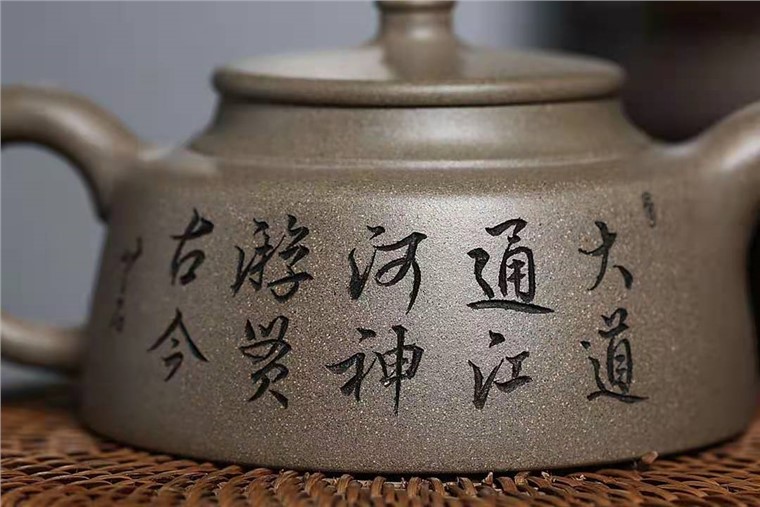 大道
通江
河神
游贤
古今